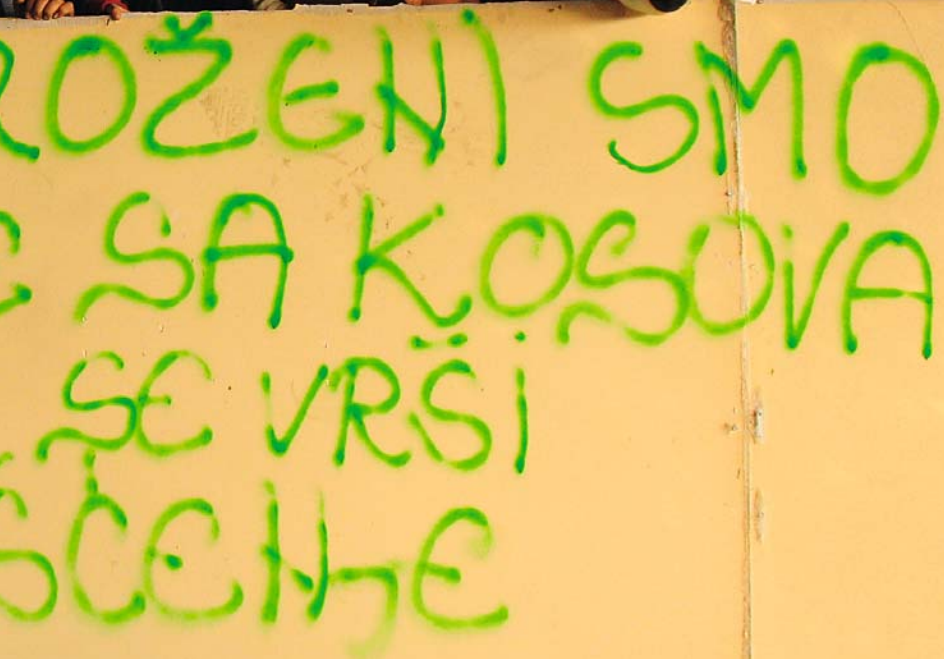 ROŽENI SMO
SA KOSOVA
SE VRŠI
ŠĆENJE